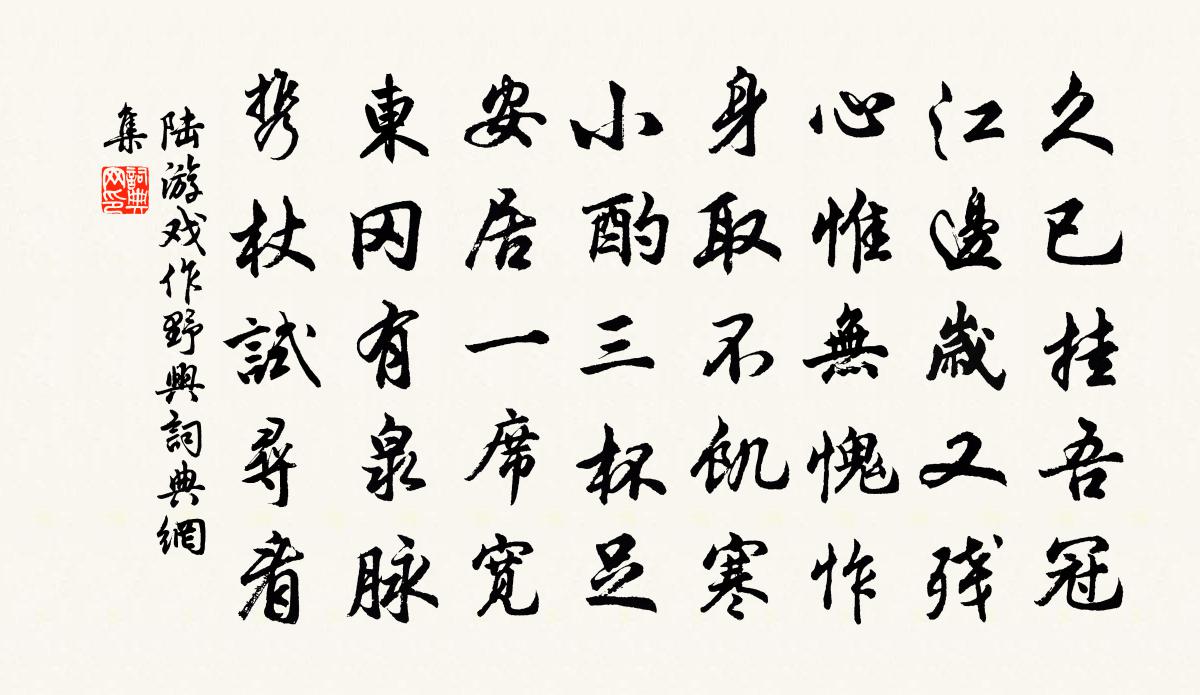 久已挂吾冠
江邊歲又残
心惟無愧怍
身取不飢寒
小酌三杯足
安居一席寬
東冈有泉脉
携杖試尋看
陆游戏作野興詞典網
集
詞典
网印